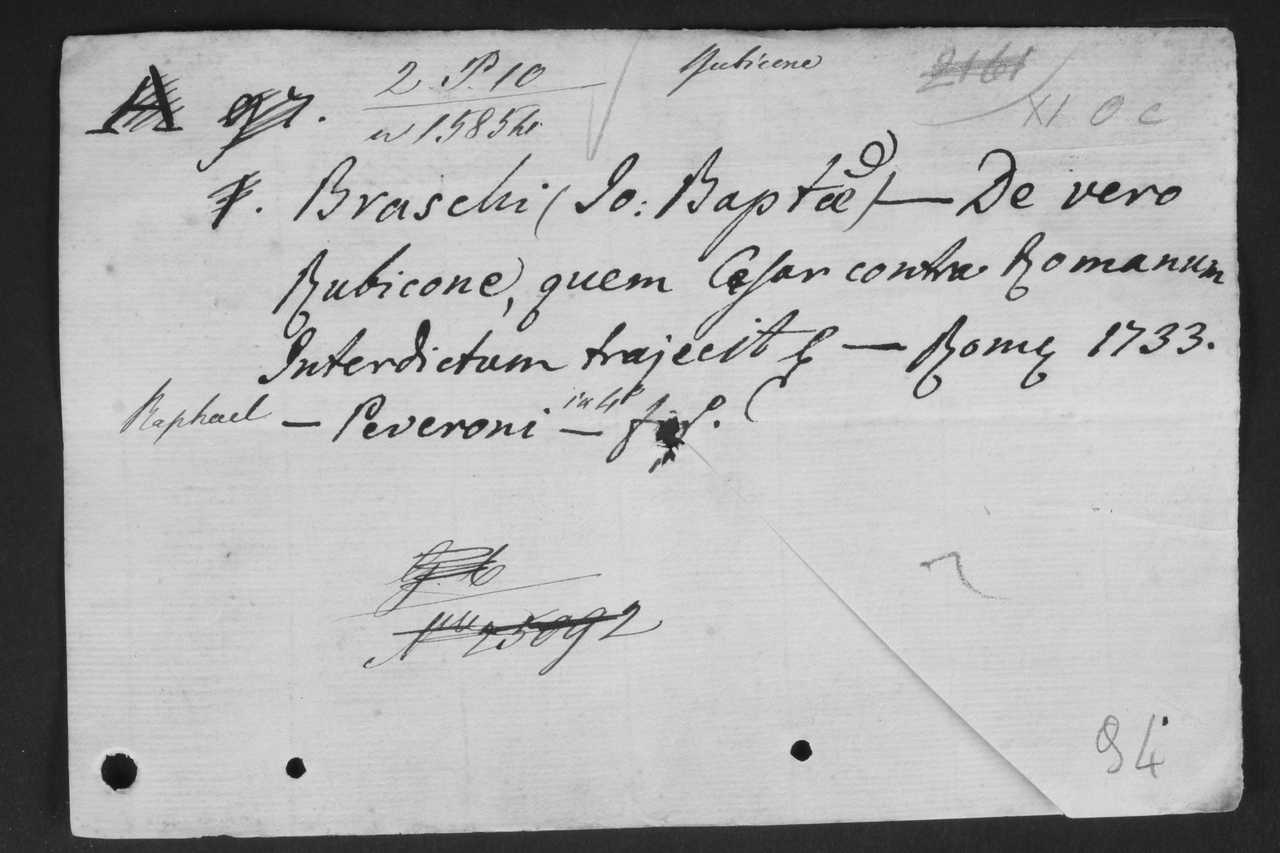 A gr. 2. P. 10 Rubicone 2161
XI O c
Braschi (Jo: Baptæ) — De vero
Rubicone, quem Cæsar contra Romanum
Interdictum trajecit — Romę 1733.
Raphael — Peveroni — in 4º
25092
84